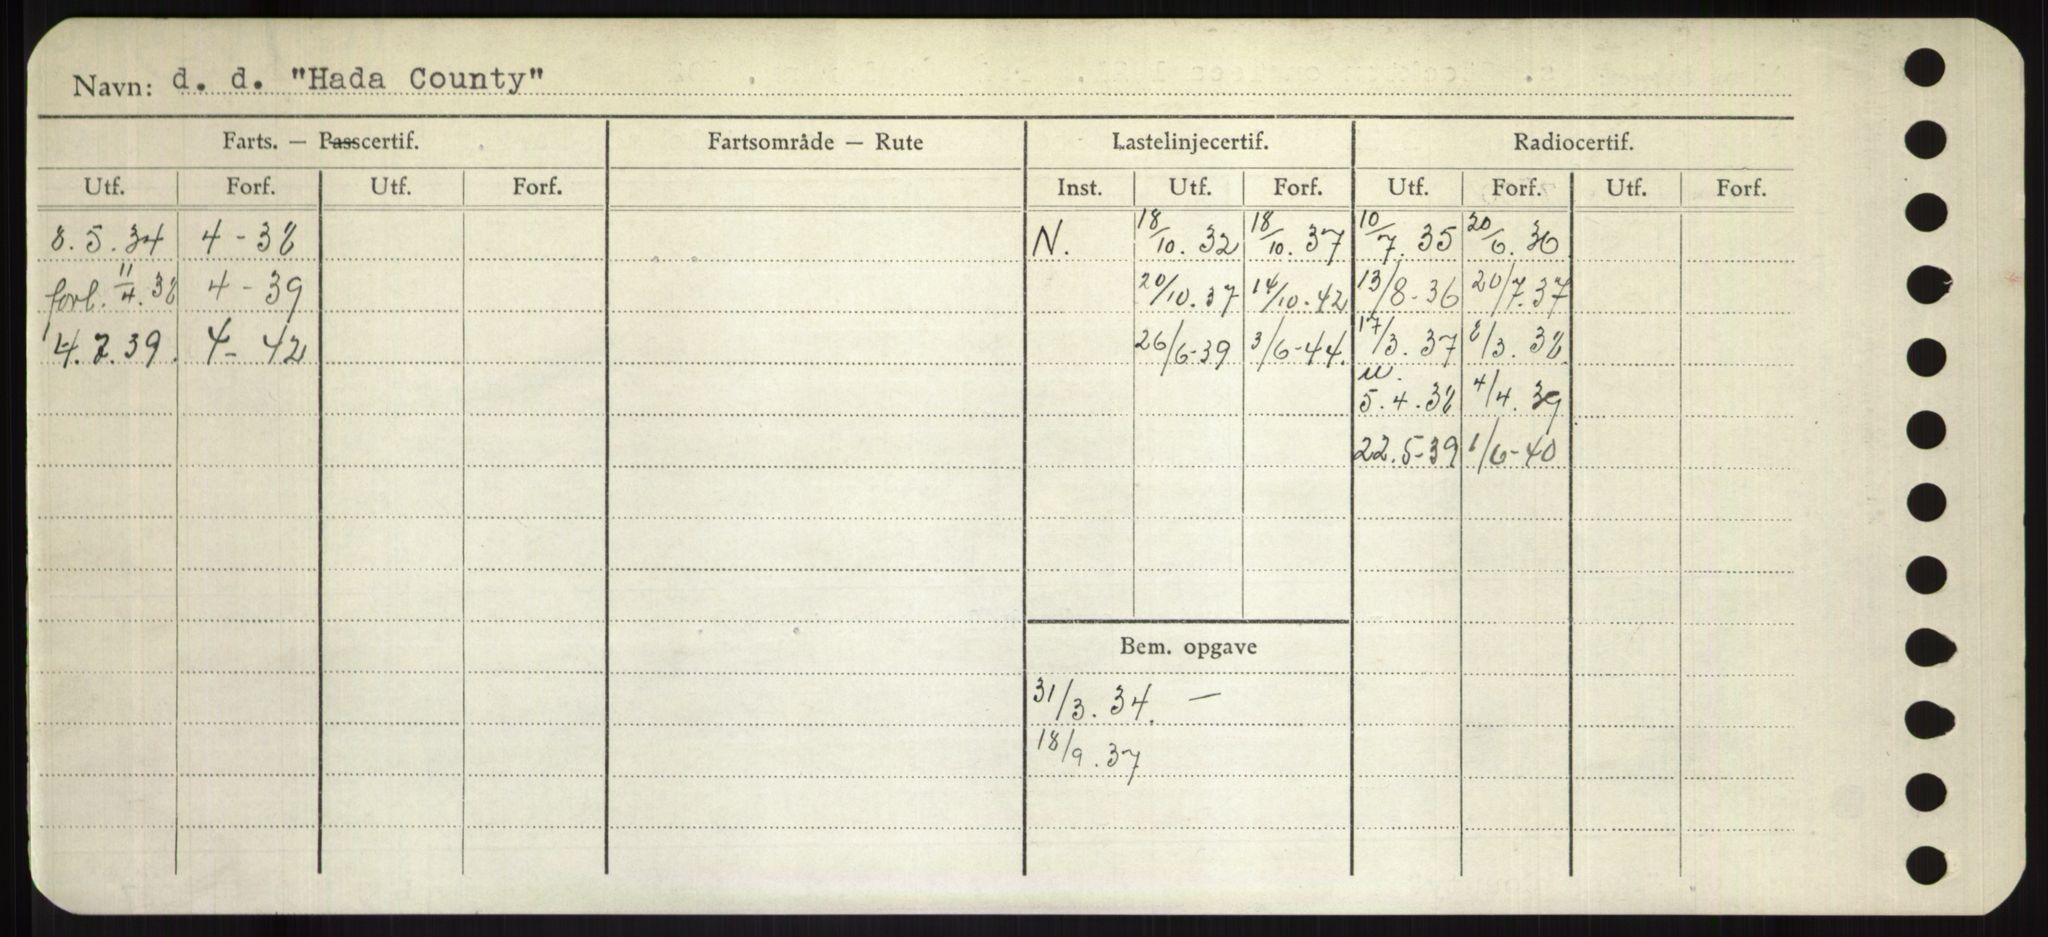 Navn: d. d. "Hada County"
Farts. — Passcertif. Fartsområde — Rute Lastelinjecertif. Radiocertif.
Utf. Forf. Utf. Forf. Inst. Utf. Forf. Utf. Forf. Utf. Forf.
8. 5. 34 4 - 38 N. 18/10. 32 18/10. 37 10/7. 35 20/6. 36
forl. 11/4. 38 4 - 39 20/10. 37 14/10. 42 13/8. 36 20/7. 37
4. 7. 39. 4 - 42 26/6-39 3/6-44. 17/3. 37 8/3. 38
5. 4. 38 4/4. 39
22. 5-39 1/6-40
Bem. opgave
31/3. 34. —
18/9. 37